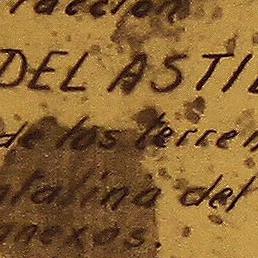 racción
DEL ASTIL
de los terren
atalina del
anexos.